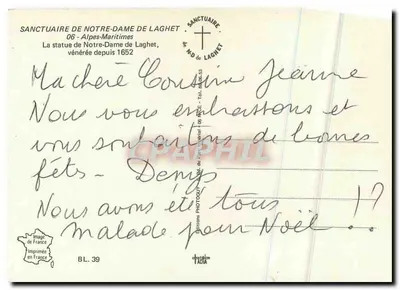 SANCTUAIRE DE NOTRE-DAME DE LAGHET
06 - Alpes-Maritimes
La statue de Notre-Dame de Laghet,
vénérée depuis 1652
SANCTUAIRE
de N-D de LAGHET
Ma chère Cousine Jeanne
Nous vous embrassons et
vous souhaitons de bonnes
fêts - Denys
Nous avons été tous !?
malade pour Noël ...
Image
de France
Imprimée
en France
BL. 39
CPAPHIL